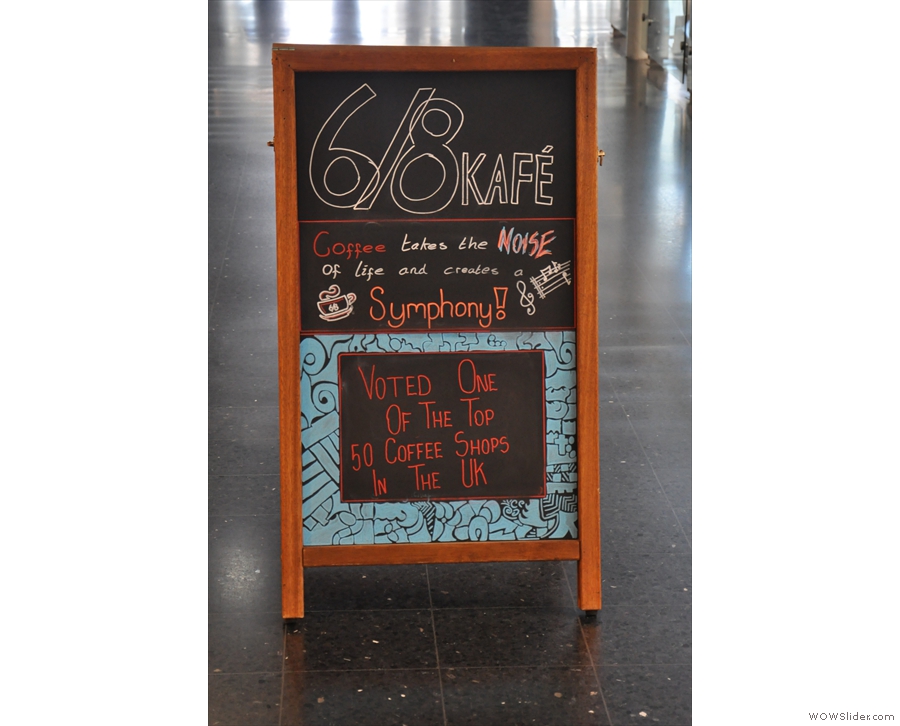 6/8 KAFÉ
Coffee takes the NOISE
Of life and creates a
68
Symphony!
VOTED ONE
OF THE TOP
50 COFFEE SHOPS
IN THE UK
WOWSlider.com